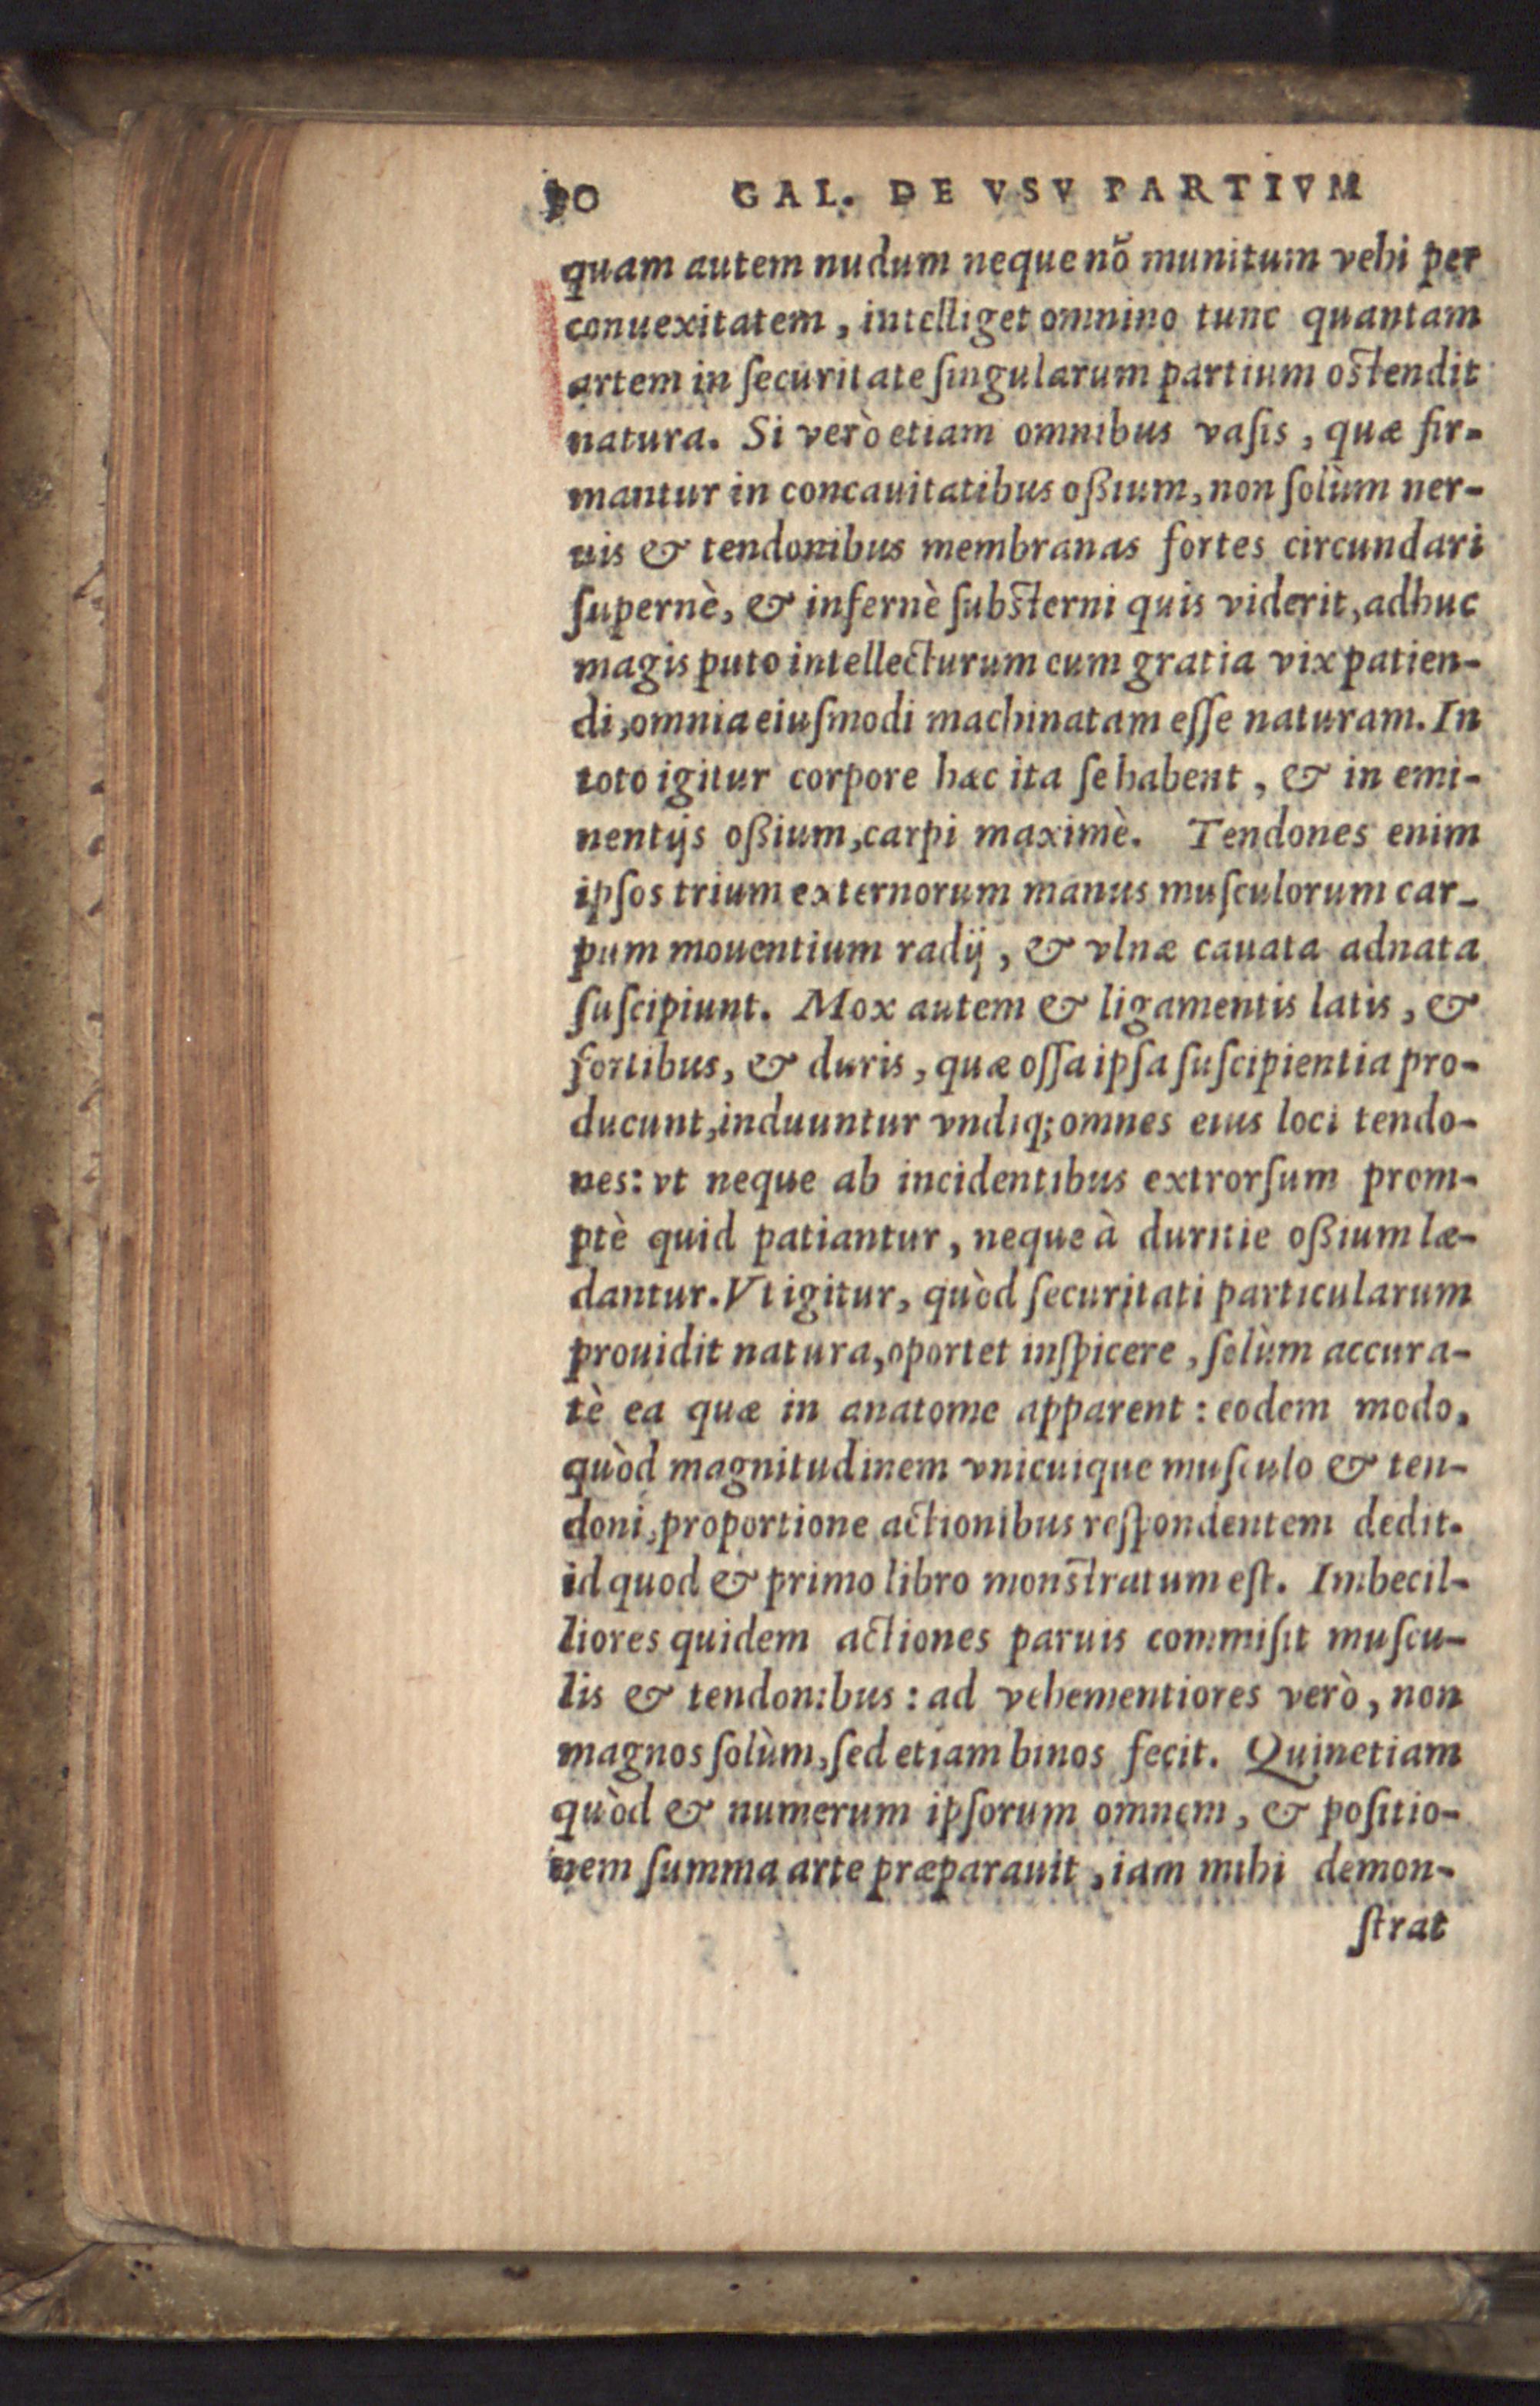 90 GAL. DE VSV PARTIVM
quam autem nudum neque nõ munitum vehi per
conuexitatem, intelliget omnino tunc quantam
artem in ſecuritate ſingularum partium oſtendit
natura. Si verò etiam omnibus vaſis, quæ fir-
mantur in concauitatibus oßium, non ſolùm ner-
uis & tendonibus membranas fortes circundari
ſupernè, & infernè ſubſterni quis viderit, adhuc
magis puto intellecturum cum gratia vix patien-
di, omnia eiuſmodi machinatam eſſe naturam. In
toto igitur corpore hæc ita ſe habent, & in emi-
nentijs oßium, carpi maximè. Tendones enim
ipſos trium externorum manus muſculorum car-
pum mouentium radij, & vlnæ cauata adnata
ſuſcipiunt. Mox autem & ligamentis latis, &
fortibus, & duris, quæ oſſa ipſa ſuſcipientia pro-
ducunt, induuntur vndiq; omnes eius loci tendo-
nes: vt neque ab incidentibus extrorſum prom-
ptè quid patiantur, neque à duritie oßium læ-
dantur. Vt igitur, quòd ſecuritati particularum
prouidit natura, oportet inſpicere, ſolùm accura-
tè ea quæ in anatome apparent: eodem modo,
quòd magnitudinem vnicuique muſculo & ten-
doni, proportione actionibus reſpondentem dedit.
id quod & primo libro monſtratum eſt. Imbecil-
liores quidem actiones paruis commiſit muſcu-
lis & tendonibus: ad vehementiores verò, non
magnos ſolùm, ſed etiam binos fecit. Quinetiam
quòd & numerum ipſorum omnem, & poſitio-
nem ſumma arte præparauit, iam mihi demon-
ſtrat